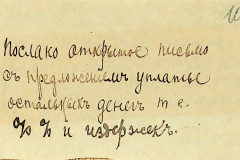 10
Послано открытое письмо
съ предложеніемъ уплатье
остальныхъ денегъ т. е.
% % и издержек.